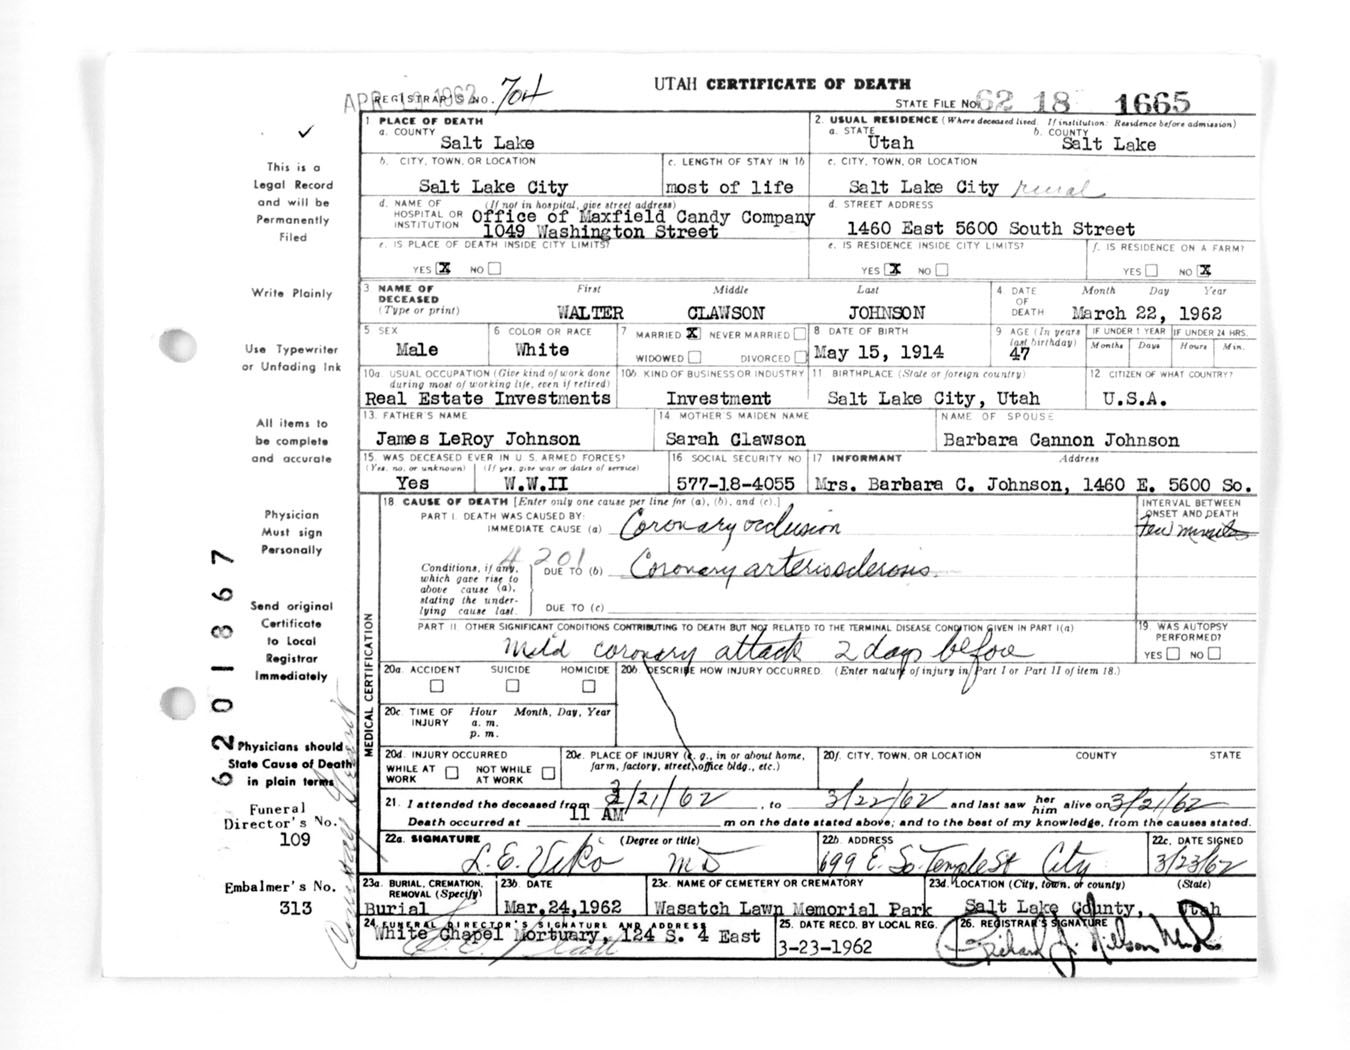 UTAH CERTIFICATE OF DEATH
REGISTRAR'S NO. 704
STATE FILE NO. 62 18 1665
1 PLACE OF DEATH
a. COUNTY
Salt Lake
2. USUAL RESIDENCE (Where deceased lived. If institution: Residence before admission)
a. STATE b. COUNTY
Utah Salt Lake
b. CITY, TOWN, OR LOCATION c. LENGTH OF STAY IN 1b
Salt Lake City most of life
c. CITY, TOWN, OR LOCATION
Salt Lake City rural
d. NAME OF HOSPITAL OR INSTITUTION (If not in hospital, give street address)
Office of Maxfield Candy Company
1049 Washington Street
d. STREET ADDRESS
1460 East 5600 South Street
e. IS PLACE OF DEATH INSIDE CITY LIMITS?
YES X NO
e. IS RESIDENCE INSIDE CITY LIMITS? f. IS RESIDENCE ON A FARM?
YES X NO YES NO X
3 NAME OF DECEASED (Type or print)
First Middle Last
WALTER CLAWSON JOHNSON
4 DATE OF DEATH Month Day Year
March 22, 1962
5 SEX 6 COLOR OR RACE
Male White
7 MARRIED X NEVER MARRIED
WIDOWED DIVORCED
8 DATE OF BIRTH
May 15, 1914
9 AGE (In years last birthday)
47
IF UNDER 1 YEAR IF UNDER 24 HRS.
Months Days Hours Min.
10a. USUAL OCCUPATION (Give kind of work done during most of working life, even if retired)
Real Estate Investments
10b. KIND OF BUSINESS OR INDUSTRY
Investment
11 BIRTHPLACE (State or foreign country)
Salt Lake City, Utah
12. CITIZEN OF WHAT COUNTRY?
U.S.A.
13. FATHER'S NAME
James LeRoy Johnson
14 MOTHER'S MAIDEN NAME
Sarah Clawson
NAME OF SPOUSE
Barbara Cannon Johnson
15 WAS DECEASED EVER IN U.S. ARMED FORCES?
(Yes, no, or unknown) (If yes, give war or dates of service)
Yes W.W.II
16 SOCIAL SECURITY NO
577-18-4055
17 INFORMANT Address
Mrs. Barbara C. Johnson, 1460 E. 5600 So.
MEDICAL CERTIFICATION
18 CAUSE OF DEATH [Enter only one cause per line for (a), (b), and (c).]
INTERVAL BETWEEN ONSET AND DEATH
PART I. DEATH WAS CAUSED BY:
IMMEDIATE CAUSE (a) Coronary occlusion
few minutes
4201
Conditions, if any, which gave rise to above cause (a), stating the underlying cause last.
DUE TO (b) Coronary arteriosclerosis.
DUE TO (c)
PART II. OTHER SIGNIFICANT CONDITIONS CONTRIBUTING TO DEATH BUT NOT RELATED TO THE TERMINAL DISEASE CONDITION GIVEN IN PART I(a)
Mild coronary attack 2 days before
19. WAS AUTOPSY PERFORMED?
YES NO
20a. ACCIDENT SUICIDE HOMICIDE
20b. DESCRIBE HOW INJURY OCCURRED. (Enter nature of injury in Part I or Part II of item 18.)
20c. TIME OF INJURY Hour Month, Day, Year
a. m.
p. m.
20d. INJURY OCCURRED
WHILE AT WORK NOT WHILE AT WORK
20e. PLACE OF INJURY (e. g., in or about home, farm, factory, street, office bldg., etc.)
20f. CITY, TOWN, OR LOCATION COUNTY STATE
21. I attended the deceased from 3/21/62, to 3/22/62 and last saw her him alive on 3/21/62
Death occurred at 11 AM m on the date stated above; and to the best of my knowledge, from the causes stated.
22a. SIGNATURE (Degree or title)
L. E. Viko MD
22b. ADDRESS
699 E. So. Temple St City
22c. DATE SIGNED
3/23/62
23a. BURIAL, CREMATION, REMOVAL (Specify)
Burial
23b. DATE
Mar. 24, 1962
23c. NAME OF CEMETERY OR CREMATORY
Wasatch Lawn Memorial Park
23d. LOCATION (City, town, or county) (State)
Salt Lake County, Utah
24 FUNERAL DIRECTOR'S SIGNATURE AND ADDRESS
White Chapel Mortuary, 124 S. 4 East
25. DATE RECD. BY LOCAL REG.
3-23-1962
26. REGISTRAR'S SIGNATURE
This is a
Legal Record
and will be
Permanently
Filed
Write Plainly
Use Typewriter
or Unfading Ink
All items to
be complete
and accurate
Physician
Must sign
Personally
Send original
Certificate
to Local
Registrar
Immediately
Physicians should
State Cause of Death
in plain terms
Funeral
Director's No.
109
Embalmer's No.
313
6201867